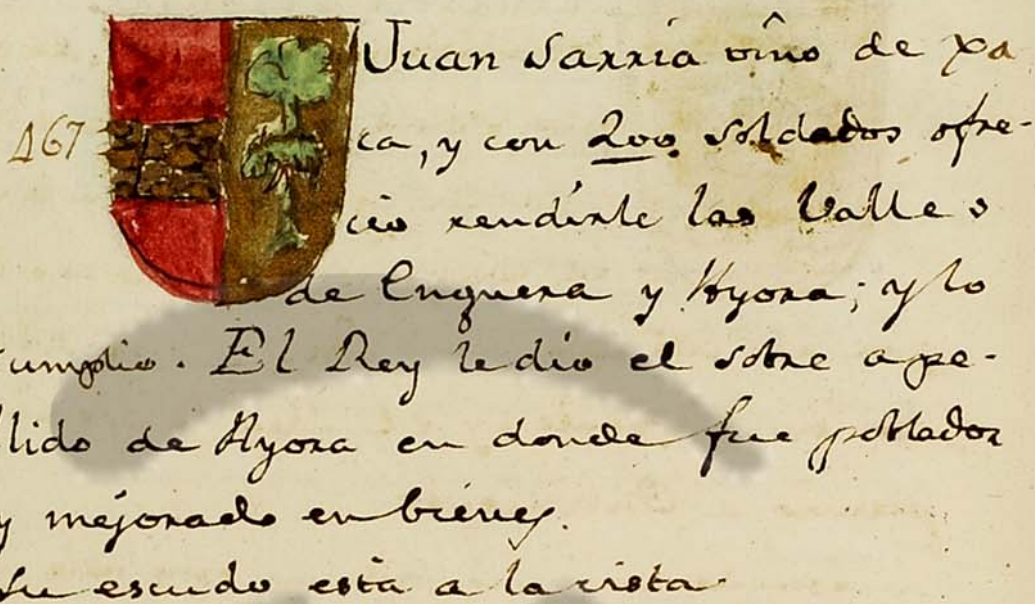 Juan Sarria vino de xa
467 ca, y con 200 soldados ofre-
cio rendirle las Valles
de Enguera y Ayora; y lo
cumplio. El Rey le dio el sobre ape-
llido de Ayora en donde fue poblador
y mejorado en bienes.
Su escudo esta a la vista